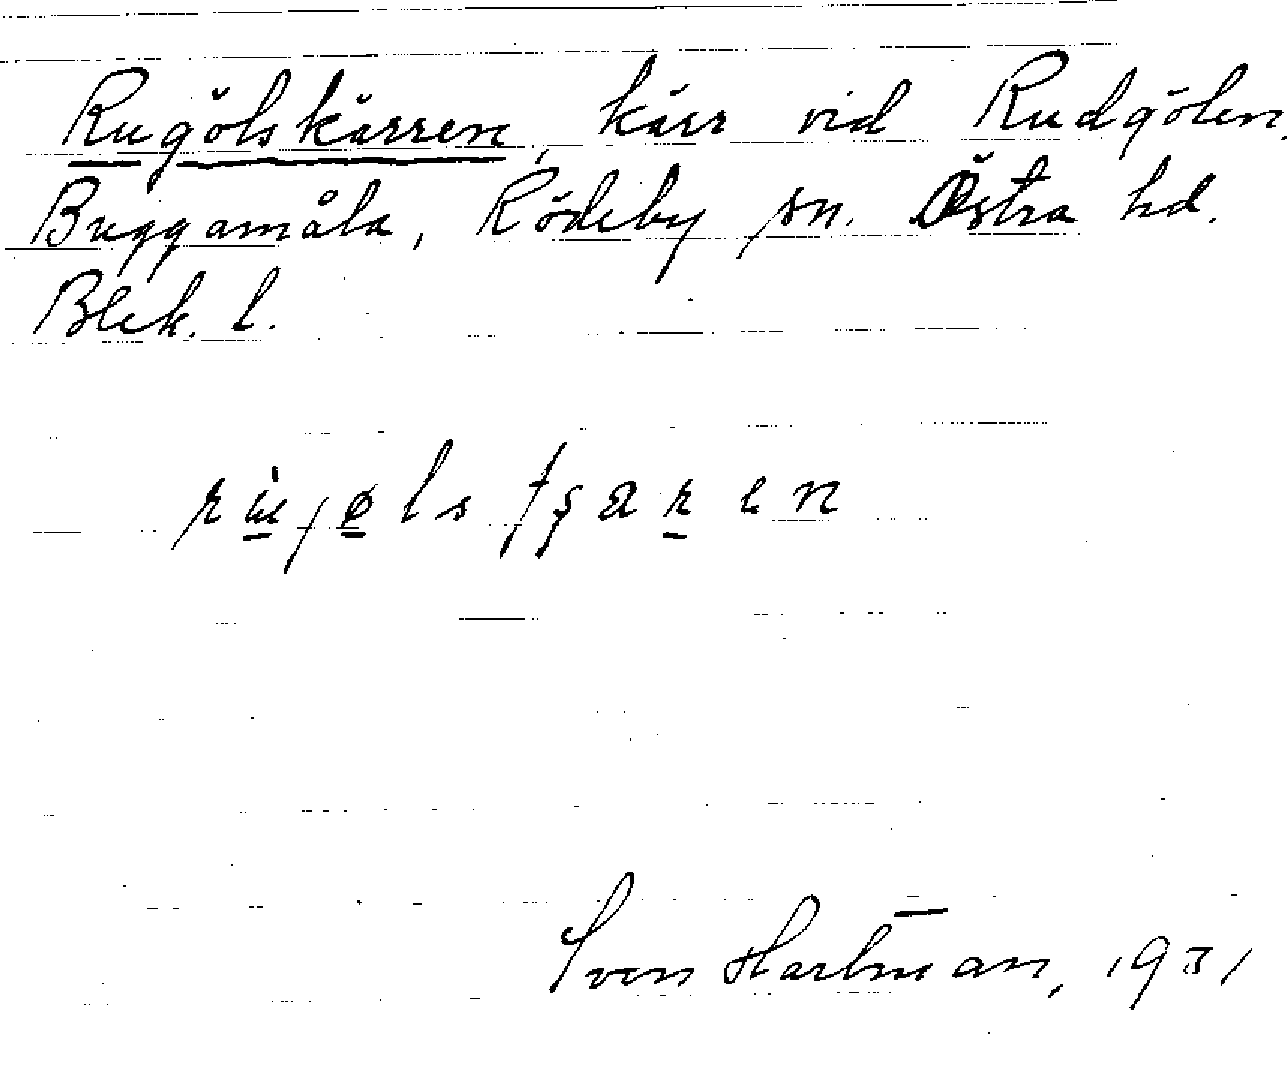 Rugölskärren, kärr vid Rudgölen,
Buggamåla, Rödeby sn. Östra hd.
Blek. l.
Sven Hartman, 1931